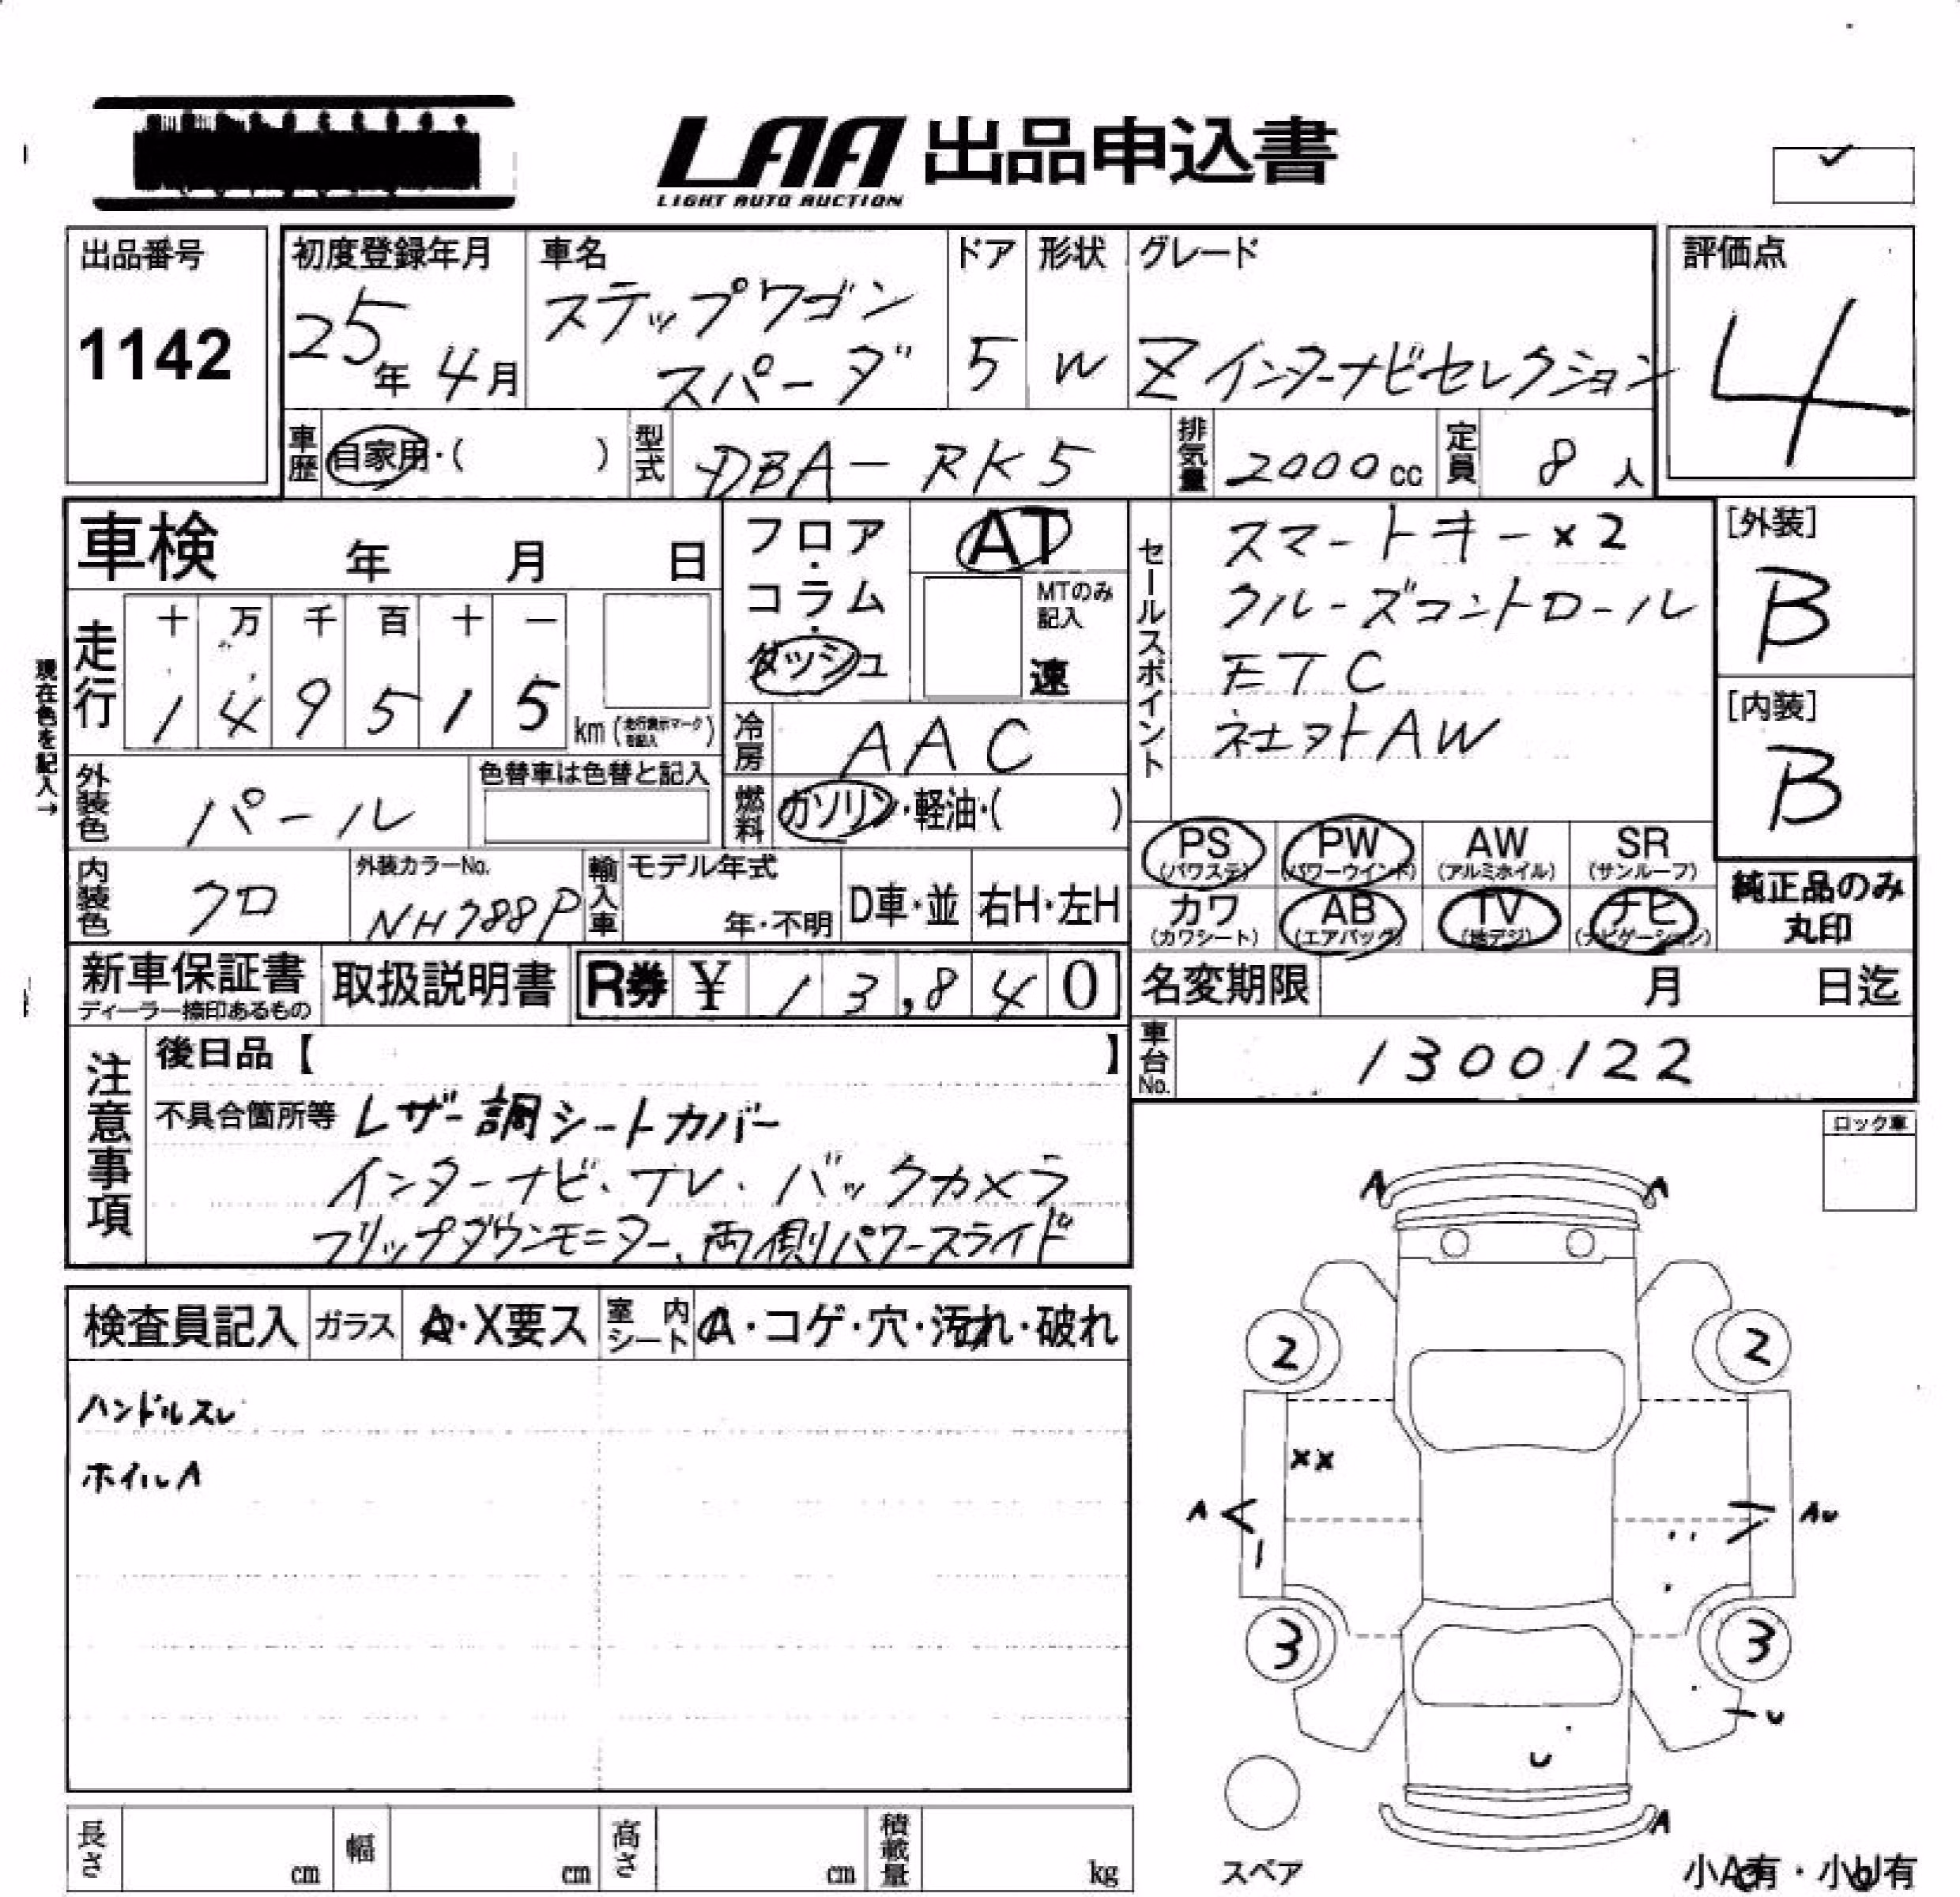 LAA 出品申込書
LIGHT AUTO AUCTION
出品番号
1142
初度登録年月
25年 4月
車名
ステップワゴン
スパーダ
ドア
5
形状
W
グレード
Z インターナビセレクション
評価点
4
車歴 自家用・( )
型式 DBA-RK5
排気量 2000cc
定員 8人
車検 年 月 日
走行
十 万 千 百 十 一
1 4 9 5 1 5 km (走行表示マークを記入)
現在色を記入→
フロア・コラム・ダッシュ
AT
MTのみ記入
速
冷房 AAC
燃料 ガソリン・軽油・( )
セールスポイント
スマートキー×2
クルーズコントロール
ETC
社外AW
[外装]
B
[内装]
B
外装色 パール
色替車は色替と記入
内装色 クロ
外装カラーNo.
NH788P
輸入車
モデル年式
年・不明
D車・並
右H・左H
PS (パワステ)
PW (パワーウインド)
AW (アルミホイル)
SR (サンルーフ)
カワ (カワシート)
AB (エアバッグ)
TV (地デジ)
ナビ (ナビゲーション)
純正品のみ
丸印
新車保証書
ディーラー捺印あるもの
取扱説明書
R券 ¥ 13,840
名変期限 月 日迄
車台No. 1300122
注意事項
後日品【 】
不具合箇所等 レザー調シートカバー
インターナビ、TV、バックカメラ
フリップダウンモニター、両側パワースライド
ロック車
検査員記入
ガラス A・X要ス
室内シート A・コゲ・穴・汚れ・破れ
ハンドルスレ
ホイルA
A A
2 2
XX
A AU
3 3
U
U
A
スペア
小A有・小U有
長さ cm
幅 cm
高さ cm
積載量 kg